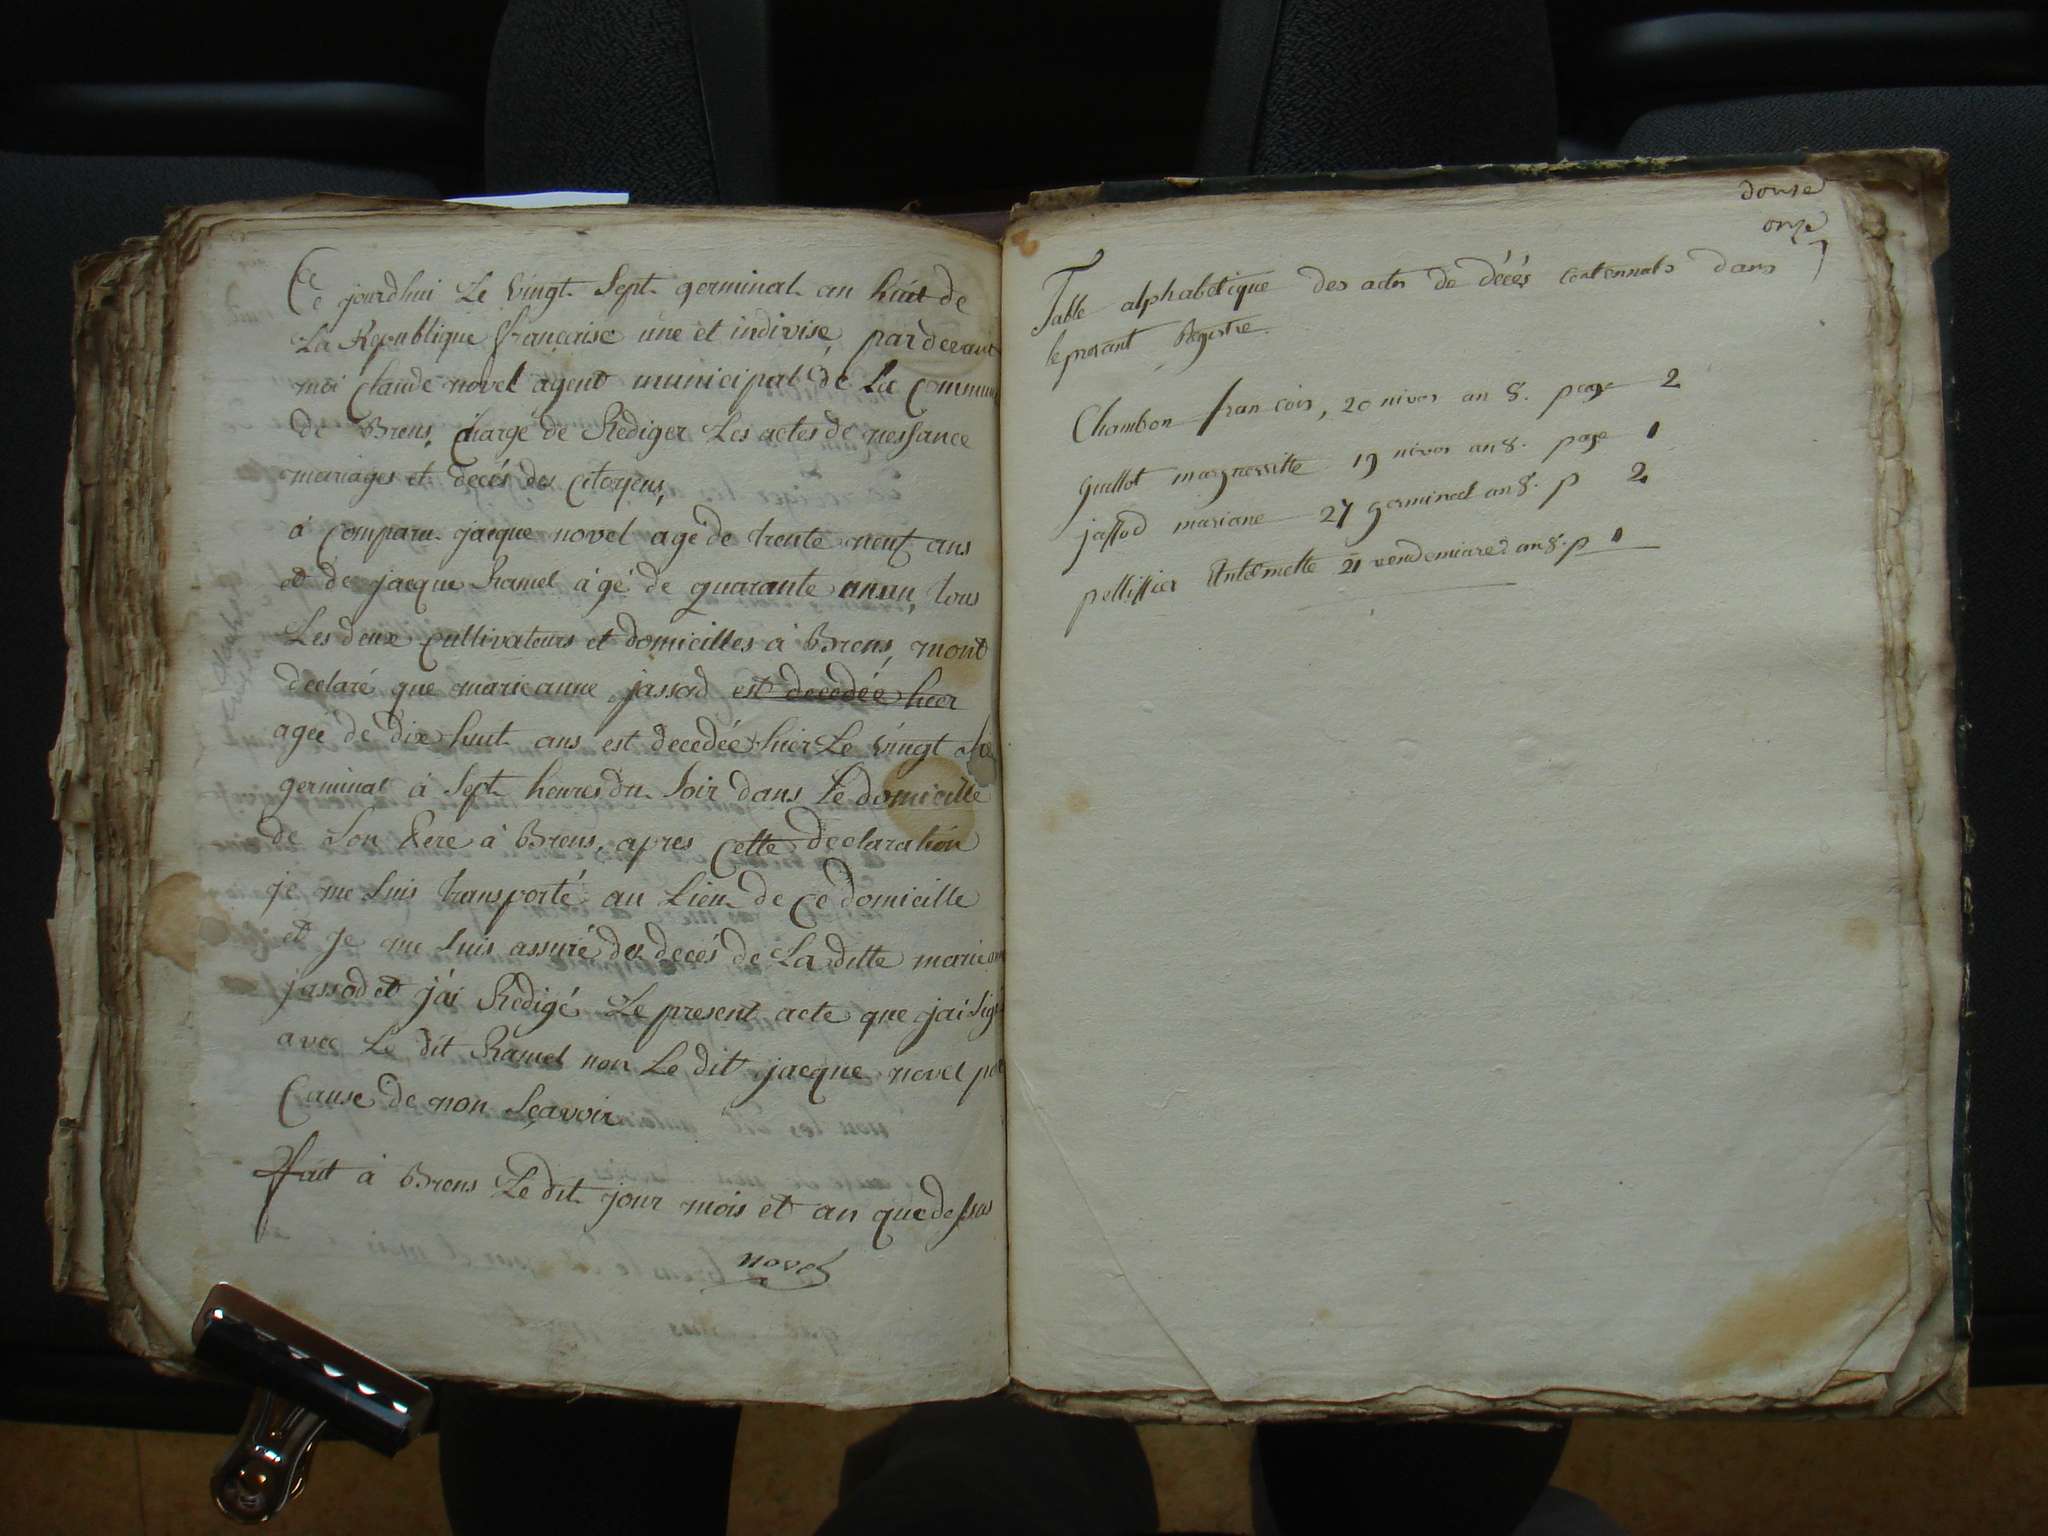 Ce jourdhui Le Vingt Sept germinal an huit de
La Republique française une et indivise, pardevant
moi Claude novel agent municipal de La Commune
de Brens, Chargé de Rediger Les actes de nessance
mariages et decés des Citoyens,
à Comparu jacque novel agé de trente neuf ans
et de jacque Ramel âgé de quarante un, tous
Les deux cultivateurs et domicilles à Brens, mont
declaré que marie anne jassod est decedée hier
agée de dix huit ans est decedée hier Le Vingt
germinal à Sept heures du Soir dans Le domicille
de Son Pere à Brens, apres Cette declaration
je me Suis transporté au Lieu de Ce domicille
et je me Suis assuré des decés de La ditte marie
jassod et j'ai Redigé Le present acte que jai Signé
avec Le dit Ramel non Le dit jacque novel
Cause de non Sçavoir
ffait à Brens Le dit jour mois et an que dessus
novel
douse
onze
Table alphabetique des actes de décés contennats dans
le presant Registre.
Chambon francois, 20 nivos an 8. page 2
guillot margueritte 19 nivos an 8. page 1
jassod mariane 27 germinal an 8. p 2
pellissier Antoinette 21 vendemiaire an 8. p 1